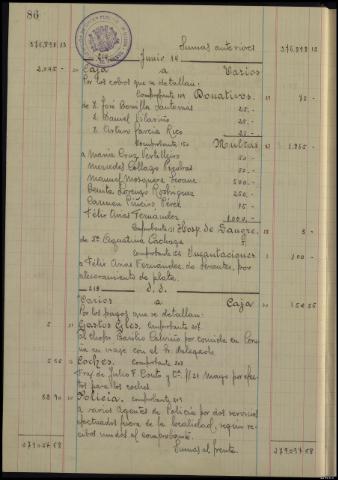 86
376,898 13 Sumas anteriores 376,898 13
Junio 14
2.045.- Caja a Varios
Por los cobros que se detallan:
Comprobante Donativos. 75 -
de D. José Bonilla 25.-
D. Manuel Vilariño 25.-
D. Arturo García Rico 25.-
Comprobante Multas 1.865 -
a María Cruz
Mercedes Collazo 50.-
Manuel Mosquera Seoane 500.-
Benita Lorenzo Rodríguez 250.-
Carmen Piñeiro Pérez 15.-
Félix Arias Fernández 1.000.-
Comprobante Hosp. de Sangre. 5 -
de Dª Agustina 5.
Comprobante Incautaciones 100 -
a Félix Arias Fernández, de
atesoramiento de plata.
218 d. d.
Varios a Caja
Por los pagos que se detallan:
5 Gastos Gles. Comprobante
Al chofer Basilio por comida en
en viaje con el Sr. delegado
Coches. Comprobante
frª. de Julio F. Couto y Cª. mayo por
para los coches
Policía. comprobante
a varios agentes de Policía por dos servicios
efectuados fuera de la localidad, según
recibos unidos al comprobante.
379.097 68 Sumas al frente. 379.097 68